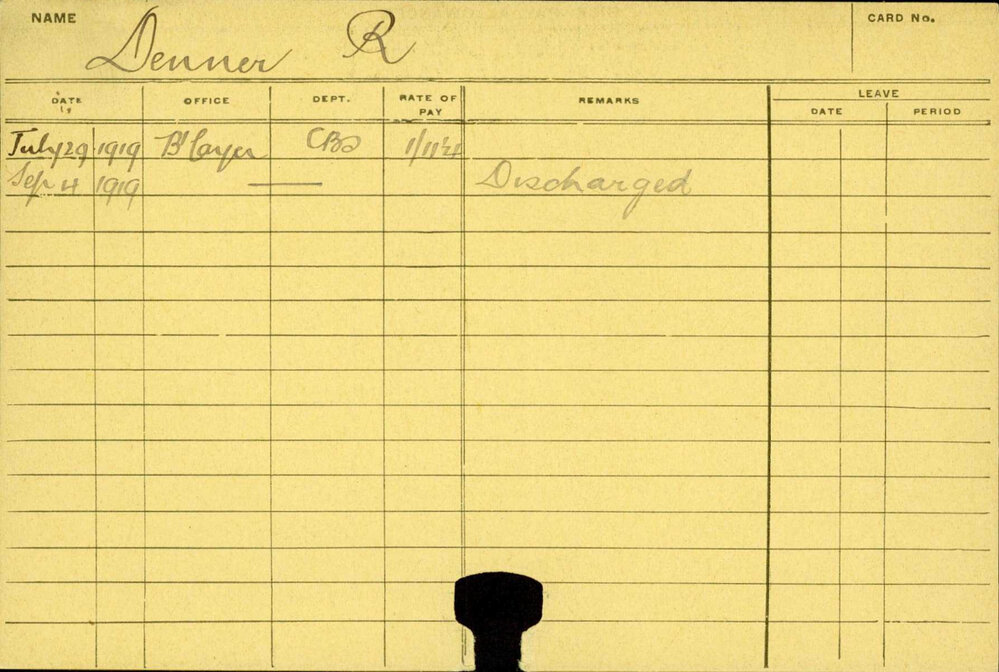 NAME Denner R CARD No.
DATE OFFICE DEPT. RATE OF PAY REMARKS LEAVE
DATE PERIOD
July 29 1919 B'layer CBS
Sep 4 1919 — Discharged